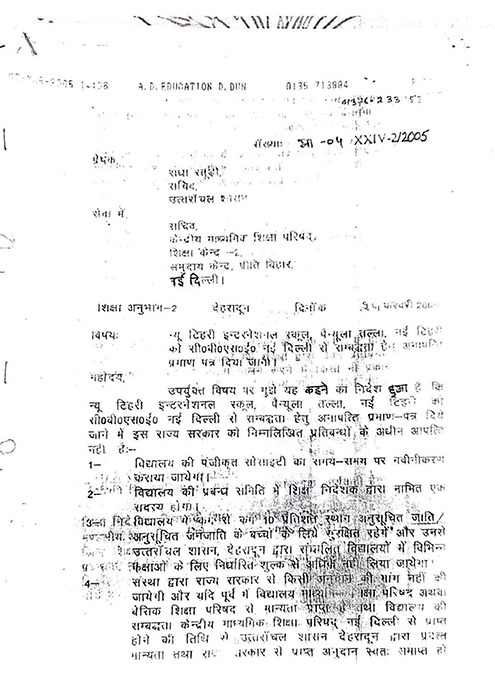 A.D. EDUCATION D.DUN 0135 713994
संख्याः XXIV-2/2005
प्रेषक,
राधा रतूड़ी,
सचिव,
उत्तरांचल शासन
सेवा में,
सचिव,
केन्द्रीय माध्यमिक शिक्षा परिषद्,
शिक्षा केन्द्र -2,
समुदाय केन्द्र, प्रीति विहार,
नई दिल्ली।
शिक्षा अनुभाग-2 देहरादून दिनॉक फरवरी
विषयः न्यू टिहरी इन्टरनेशनल स्कूल, पैन्यूला तल्ला, नई टिहरी
को सी०बी०एस०ई० नई दिल्ली से सम्बद्धता हेतु अनापत्ति
प्रमाण पत्र दिया जाना।
महोदय,
उपर्युक्त विषय पर मुझे यह कहने का निदेश हुआ है कि
न्यू टिहरी इन्टरनेशनल स्कूल, पैन्यूला तल्ला, नई टिहरी को
सी०बी०एस०ई० नई दिल्ली से सम्बद्धता हेतु अनापत्ति प्रमाण-पत्र दिये
जाने में इस राज्य सरकार को निम्नलिखित प्रतिबन्धों के अधीन आपत्ति
नहीं है:-
1- विद्यालय की पंजीकृत सोसाइटी का समय-समय पर नवीनीकरण
कराया जायेगा।
2- विद्यालय की प्रबन्ध समिति में शिक्षा निदेशक द्वारा नामित एक
सदस्य होगा।
विद्यालय में कम से कम 10 प्रतिशत स्थान अनुसूचित जाति/
अनुसूचित जनजाति के बच्चों के लिये सुरक्षित रहेगें और उनसे
उत्तरांचल शासन, देहरादून द्वारा संचालित विद्यालयों में विभिन्न
कक्षाओं के लिए निर्धारित शुल्क से अधिक नहीं लिया जायेगा।
4- संस्था द्वारा राज्य सरकार से किसी अनुदान की मांग नहीं की
जायेगी और यदि पूर्व में विद्यालय माध्यमिक शिक्षा परिषद अथवा
बेसिक शिक्षा परिषद से मान्यता प्राप्त है तथा विद्यालय की
सम्बद्धता केन्द्रीय माध्यमिक शिक्षा परिषद् नई दिल्ली से प्राप्त
होने की तिथि से उत्तरांचल शासन देहरादून द्वारा प्रदत्त
मान्यता तथा राज्य सरकार से प्राप्त अनुदान स्वतः समाप्त हो